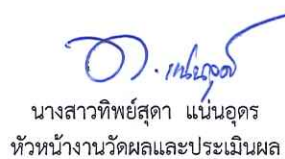 นางสาวทิพย์สุดา แน่นอุดร
หัวหน้างานวัดผลและประเมินผล